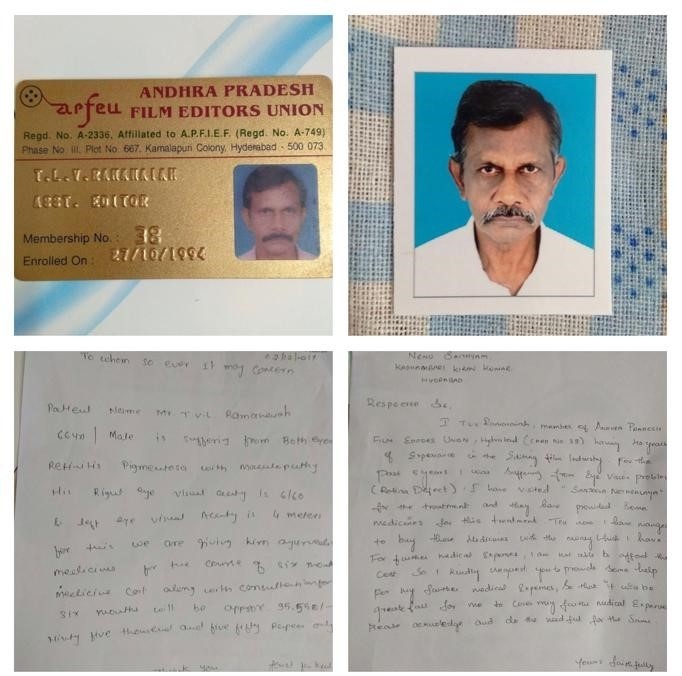 apfeu
ANDHRA PRADESH
FILM EDITORS UNION
Regd. No. A-2336, Affiliated to A.P.F.I.E.F. (Regd. No. A-749)
Phase No. III, Plot No. 667, Kamalapuri Colony, Hyderabad - 500 073
T.L.V.RAMANAIAH
ASST. EDITOR
Membership No. : 38
Enrolled On : 27/10/1994
To whom so ever It may
Concern
Patient Name Mr. T.V.L. Ramanaiah
66yr / Male is suffering from Both eyes
Retinitis Pigmentosa with maculopathy
His Right eye visual acuty is 6/60
& left eye visual Acuity is 4 meters
for this we are giving him ayurvedic
medicines for the course of six month
medicine cost along with consultation for
six months will be approx 95,550/-
Ninty five thousand and five fifty Rupees only
Thank you
NENU SAITHYAM
KADHAMBARI KIRAN KUMAR
HYDERABAD
Respected Sir,
I TLV Ramanaiah, member of Andhra Pradesh
Film Editors Union, Hyderabad (Card No. 38) having 40 years
of Experience in the Editing film Industry. For the
Past 6 years I was suffering from Eye Vision problem
(Retina Defect). I have visited
for the treatment and they have provided some
medicines for this treatment. Till now I have managed
to buy these Medicines with the money which I have
For further medical Expenses, I am not able to afford the
Cost. So I kindly request you to provide some help
for my further medical Expenses, So that it will be
greatefull for me to cover my further medical Expenses
please acknowledge and do the needful for the same.
Yours faithfully